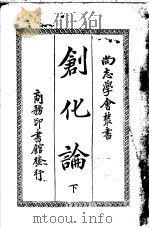 尚志學會叢書
創化論
下
商務印書館發行
www.toutu.com